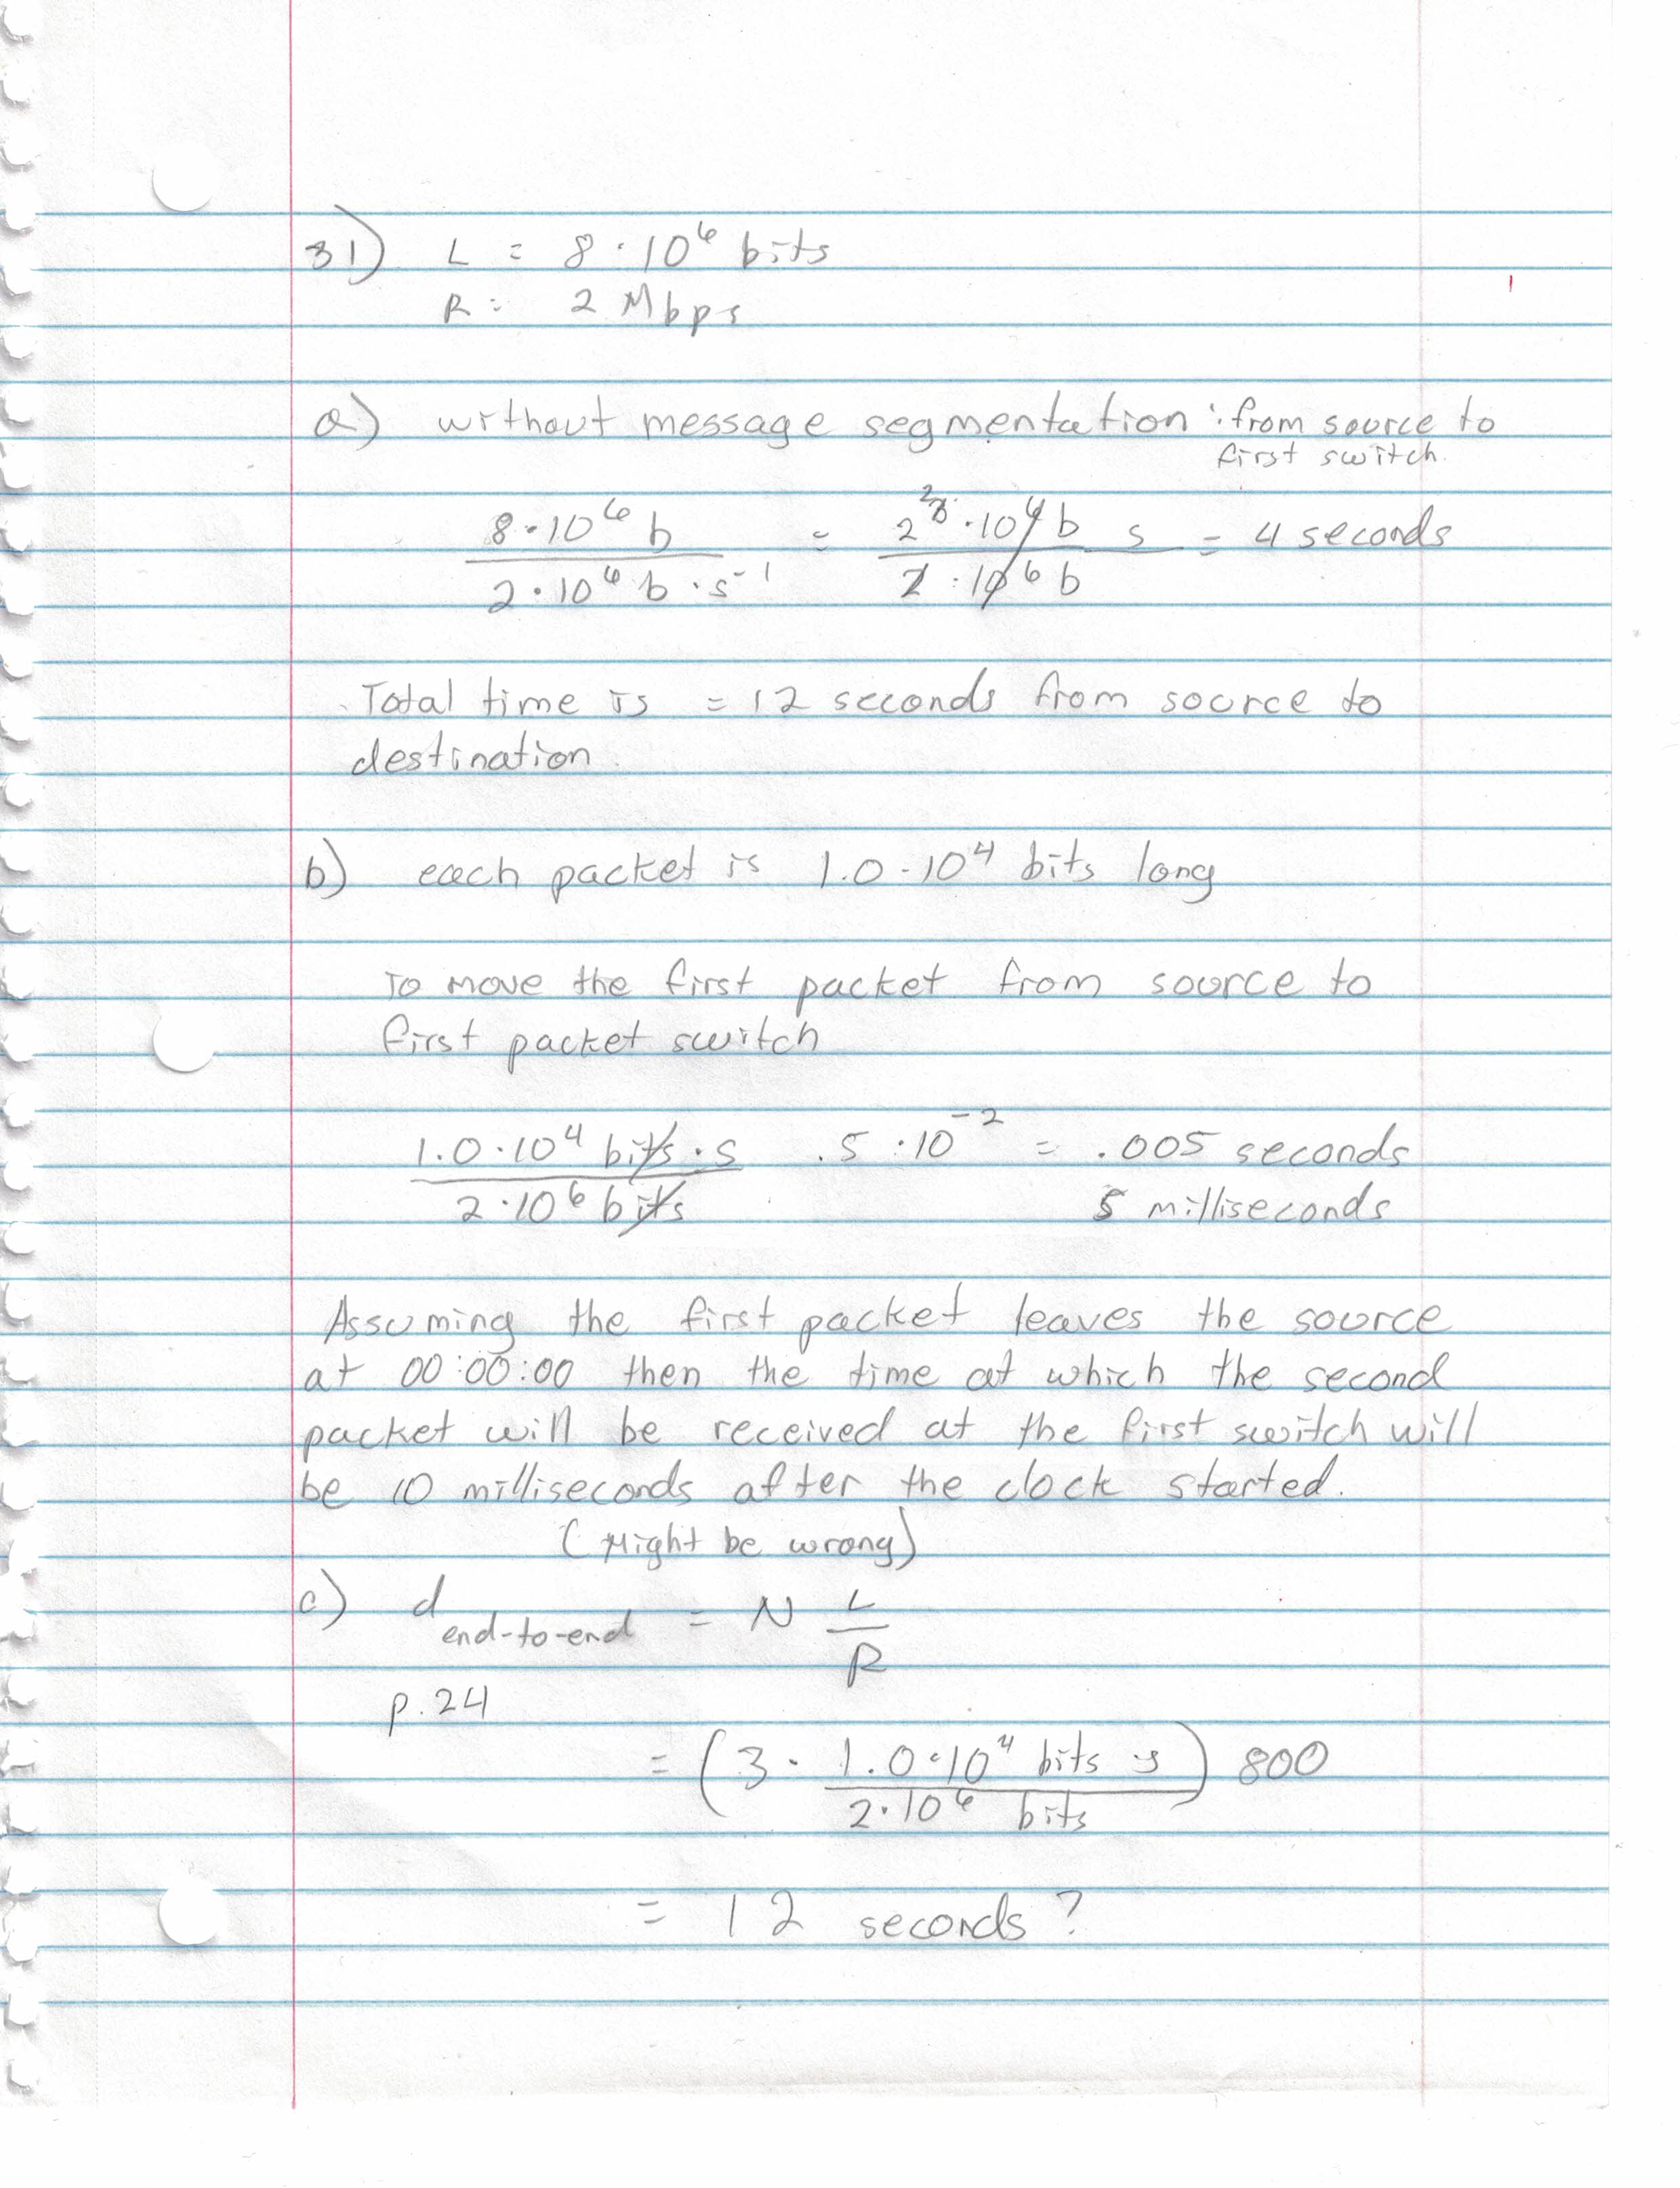 31) L = 8 · 10^6 bits
R = 2 Mbps
a) without message segmentation : from source to
first switch.
8·10^6 b / 2·10^6 b·s^-1 = 2^2 · 10^6 b s / 2 · 10^6 b = 4 seconds
Total time is = 12 seconds from source to
destination.
b) each packet is 1.0·10^4 bits long
To move the first packet from source to
first packet switch
1.0·10^4 bits·s / 2·10^6 bits .5 · 10^-2 = .005 seconds
5 milliseconds
Assuming the first packet leaves the source
at 00:00:00 then the time at which the second
packet will be received at the first switch will
be 10 milliseconds after the clock started.
(Might be wrong)
c) d end-to-end = N L / R
p.24
= (3 · 1.0·10^4 bits s / 2·10^6 bits) 800
= 12 seconds?